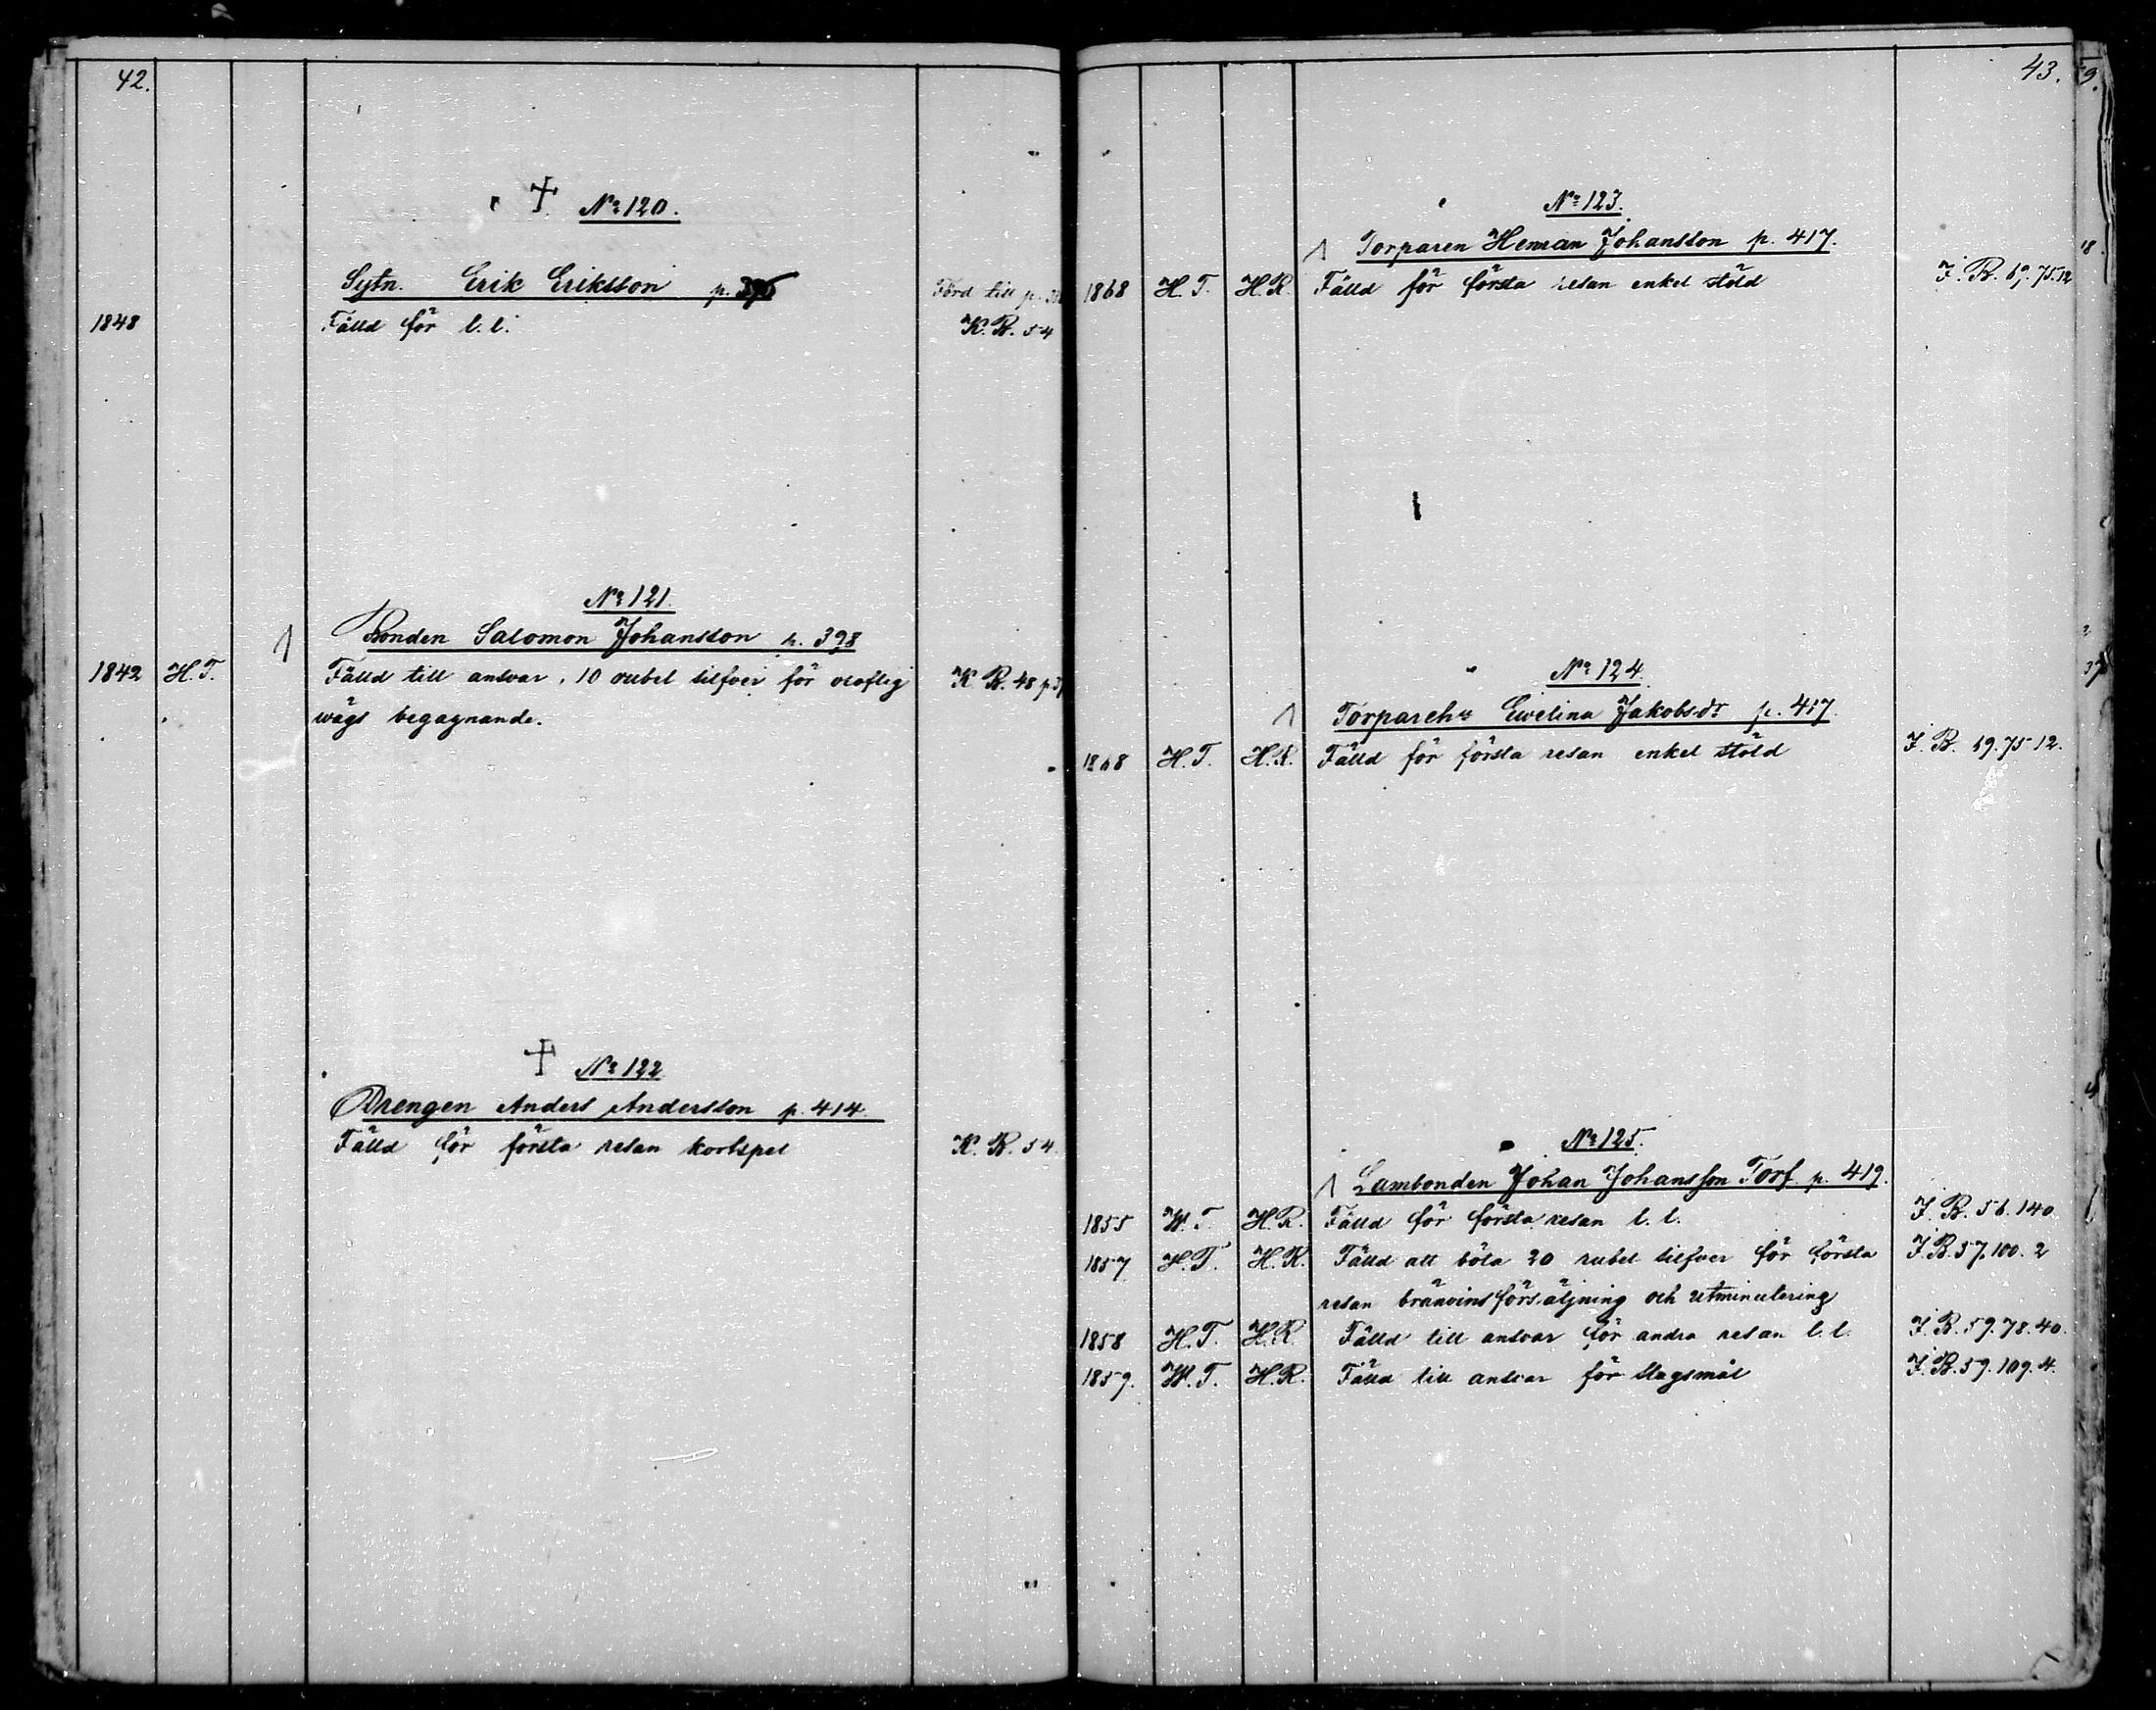 42.
№ 120.
Sytn. Erik Eriksson p. 396 Förd till p.
1848 Fälld för l. l. K. B. 54
№ 121.
Bonden Salomon Johansson p. 398
1842 H. T. Fälld till ansvar, 10 rubel silfver för oloflig K. B. 48 p.
wägs begagnande.
№ 122
Drengen Anders Andersson p. 414.
Fälld för första resan kortspel K. B. 54.
43.
№ 123.
Torparen Herman Johansson p. 417.
1868 H. T. H. R. Fälld för första resan enkel stöld I. B. 69. 75. 12
№ 124.
Ewelina Jakobsdr p. 417.
1868 H. T. H. R. Fälld för första resan enkel stöld I. B. 69. 75 12.
№ 125.
Lambonden Johan Johansson Torf p. 419.
1855 W. T. H. R. Fälld för första resan l. l. I. B. 56. 140
1857 H. T. H. R. Fälld att böta 20 rubel silfver för första I. B. 57. 100. 2
resan bränvinsförsäljning och utminutering
1858 H. T. H. R. Fälld till ansvar för andra resan l. l. I. B. 59. 78. 40.
1859. W. T. H. R. Fälld till ansvar för slagsmål I. B. 59. 109. 4.